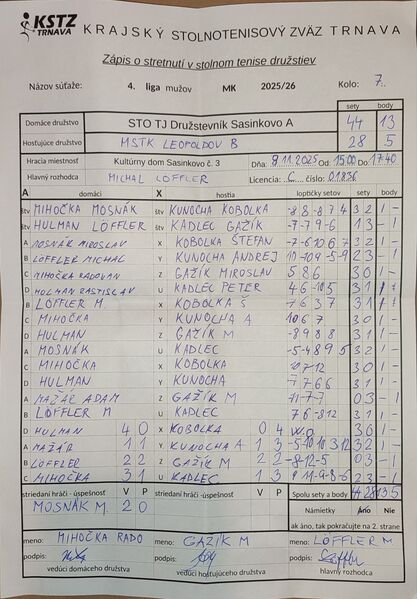 KSTZ TRNAVA KRAJSKÝ STOLNOTENISOVÝ ZVÄZ TRNAVA
Zápis o stretnutí v stolnom tenise družstiev
Názov súťaže: 4. liga mužov MK 2025/26 Kolo: 7.
sety body
Domáce družstvo STO TJ Družstevník Sasinkovo A 44 13
Hosťujúce družstvo MSTK LEOPOLDOV B 28 5
Hracia miestnosť Kultúrny dom Sasinkovo č. 3 Dňa: 9.11.2025 Od 15:00 Do 17:40
Hlavný rozhodca MICHAL LÖFFLER Licencia: C číslo:
A domáci X hostia loptičky setov sety body
štv MIHOČKA MOSNÁK štv KUNOCHA KOBOLKA -8 8 -8 7 4 3 2 1 -
štv HULMAN LÖFFLER štv KADLEC GAŽÍK -7 -7 9 -6 1 3 - 1
A MOSNÁK MIROSLAV X KOBOLKA ŠTEFAN 3 2 1 -
B LÖFFLER MICHAL Y KUNOCHA ANDREJ 2 3 - 1
C MIHOČKA RADOVAN Z GAŽÍK MIROSLAV 5 8 6 3 0 1 -
D HULMAN RASTISLAV U KADLEC PETER 3 1
B LÖFFLER M X KOBOLKA Š 3 1
C MIHOČKA Y KUNOCHA A 10 6 7 3 0 1 -
D HULMAN Z GAŽÍK M -8 9 8 8 3 1 1 -
A MOSNÁK U KADLEC -5 -4 8 9 5 3 2 1 -
C MIHOČKA X KOBOLKA 3 0 1 -
D HULMAN Y KUNOCHA 3 1 1 -
A MAŽÁR ADAM Z GAŽÍK M -11 -7 -7 0 3 - 1
B LÖFFLER M U KADLEC 7 6 -8 12 3 1 1 -
D HULMAN 4 0 X KOBOLKA 0 4 w.o. 3 0 1 -
A MAŽÁR 1 1 Y KUNOCHA A 1 3 3 2 1 -
B LÖFFLER 2 2 Z GAŽÍK M 2 2 -8 -12 -5 0 3 - 1
C MIHOČKA 3 1 U KADLEC 1 3 2 3 - 1
striedaní hráči - úspešnosť V P striedaní hráči - úspešnosť V P Spolu sety a body 44 28 13 5
MOSNÁK M. 2 0 Námietky Áno Nie
ak áno, tak pokračujte na 2. strane
meno: MIHOČKA RADO meno: GAŽÍK M meno: LÖFFLER M
podpis: podpis: podpis:
vedúci domáceho družstva vedúci hosťujúceho družstva hlavný rozhodca